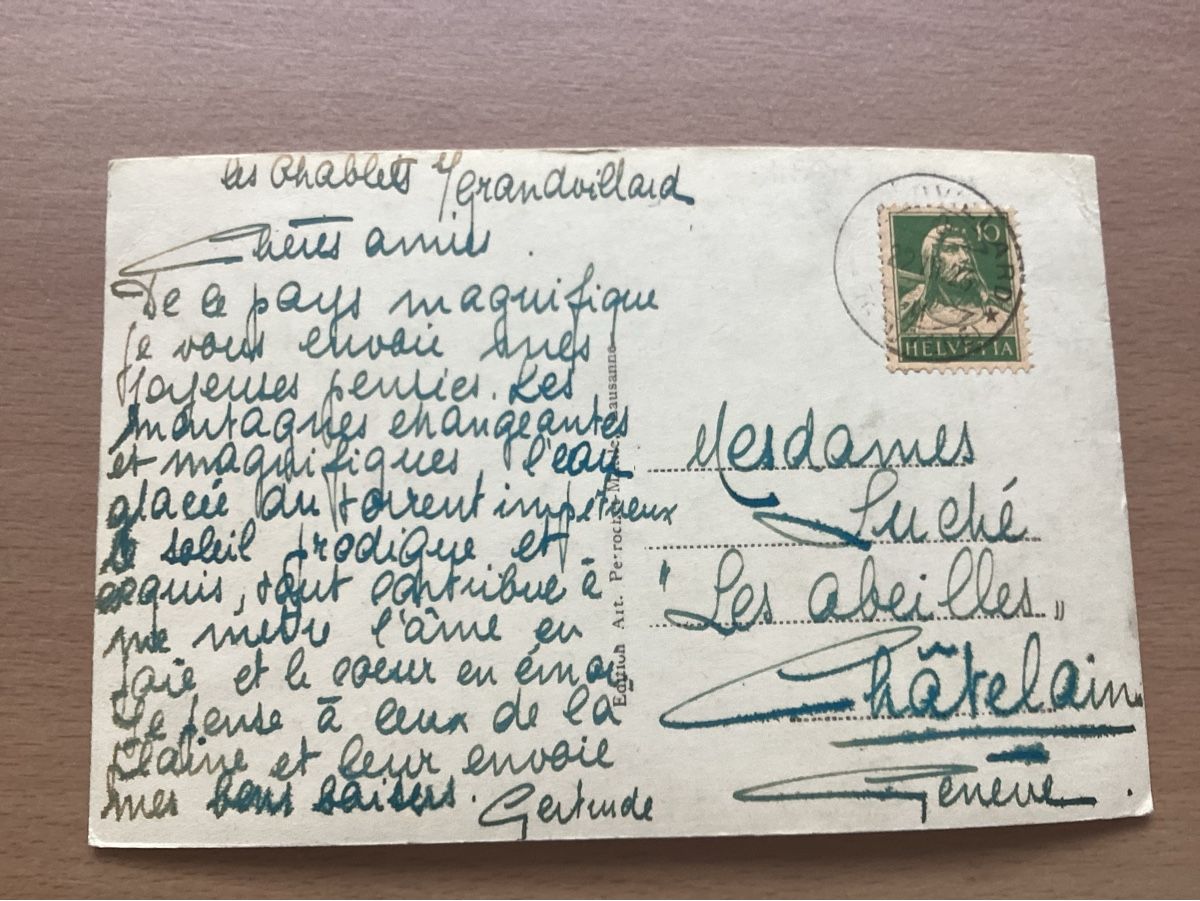 Les Chablets s/ Grandvillard
Chères amies.
De ce pays magnifique
je vous envoie mes
joyeuses pensées. Les
montagnes changeantes
et magnifiques, l'eau
glacée du torrent impétueux
le soleil prodigue et
exquis, tout contribue à
me mettre l'âme en
joie et le coeur en émoi
Je pense à ceux de la
plaine et leur envoie
mes bons baisers.
Gertrude
Edition Art. Perrochet
Lausanne
10
HELVETIA
Mesdames
Luché
"Les abeilles"
Châtelaine
Genève.